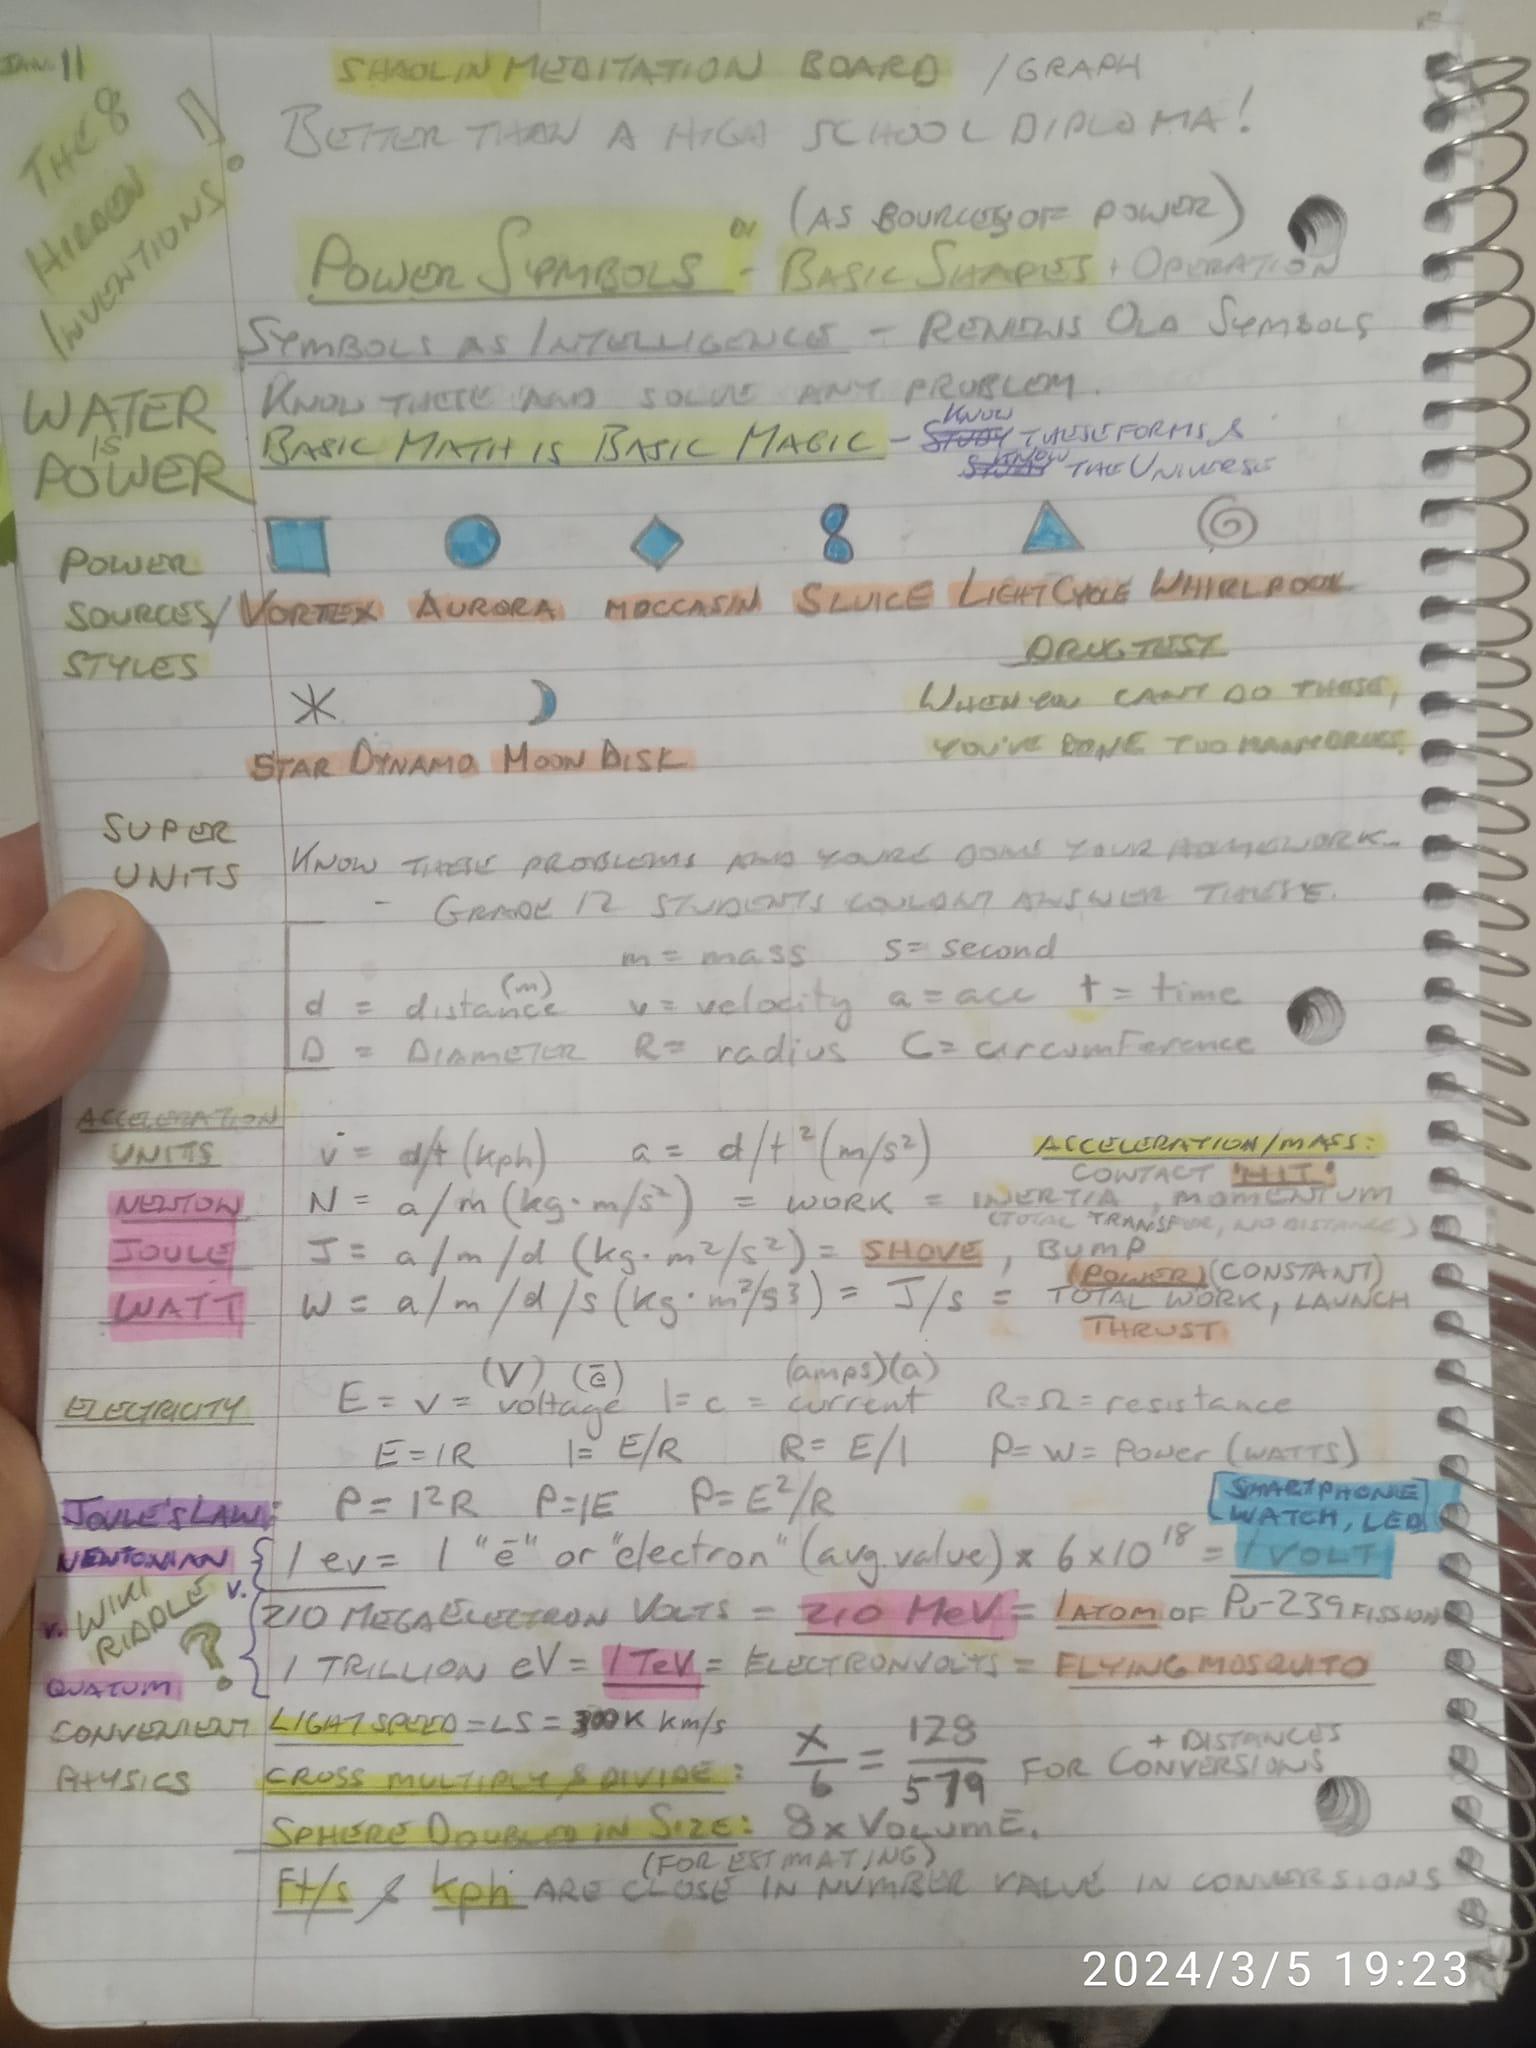 JAN. 11
SHAOLIN MEDITATION BOARD / GRAPH
THE 8 HIDDEN INVENTIONS!
BETTER THAN A HIGH SCHOOL DIPLOMA!
(AS SOURCES OF POWER)
POWER SYMBOLS or - BASIC SHAPES + OPERATION
SYMBOLS AS INTELLIGENCE - RENEWS OLD SYMBOLS
WATER IS POWER
KNOW THESE AND SOLVE ANY PROBLEM.
BASIC MATH IS BASIC MAGIC - KNOW THESE FORMS &
KNOW THE UNIVERSE
POWER SOURCES/STYLES
VORTEX AURORA MOCCASIN SLUICE LIGHTCYCLE WHIRLPOOL
DRUG TEST
WHEN YOU CANT DO THESE,
YOU'VE DONE TOO MANY DRUGS.
STAR DYNAMO MOON DISK
SUPER UNITS
KNOW THESE PROBLEMS AND YOURE DONE YOUR HOMEWORK...
- GRADE 12 STUDENTS COULDNT ANSWER THESE.
m = mass s = second
d = distance (m) v = velocity a = acc t = time
D = DIAMETER R = radius C = circumference
ACCELERATION UNITS
v = d/t (kph) a = d/t² (m/s²)
ACCELERATION/MASS:
CONTACT "HIT"
NEWTON N = a/m (kg·m/s²) = WORK = INERTIA, MOMENTUM
(TOTAL TRANSFER, NO DISTANCE)
JOULE J = a/m/d (kg·m²/s²) = SHOVE, BUMP
(POWER) (CONSTANT)
WATT W = a/m/d/s (kg·m²/s³) = J/s = TOTAL WORK, LAUNCH
THRUST
ELECTRICITY E = v = voltage (V) (ē) I = c = current (amps)(a) R = Ω = resistance
E = IR I = E/R R = E/I P = W = Power (WATTS)
JOULE'S LAW: P = I²R P = IE P = E²/R
[SMARTPHONE WATCH, LED]
NEWTONIAN { 1 ev = 1 "ē" or "electron" (avg. value) x 6 x 10¹⁸ = 1 VOLT
v. WIKI RIDDLE ? v.
210 MEGAELECTRON VOLTS = 210 MeV = 1 ATOM OF Pu-239 FISSION
QUATUM 1 TRILLION eV = 1 TeV = ELECTRONVOLTS = FLYING MOSQUITO
CONVENIENT PHYSICS
LIGHTSPEED = LS = 300K km/s
CROSS MULTIPLY & DIVIDE: X/6 = 128/579 FOR CONVERSIONS + DISTANCES
SPHERE DOUBLED IN SIZE: 8x VOLUME.
(FOR ESTIMATING)
Ft/s & kph ARE CLOSE IN NUMBER VALUE IN CONVERSIONS
2024/3/5 19:23